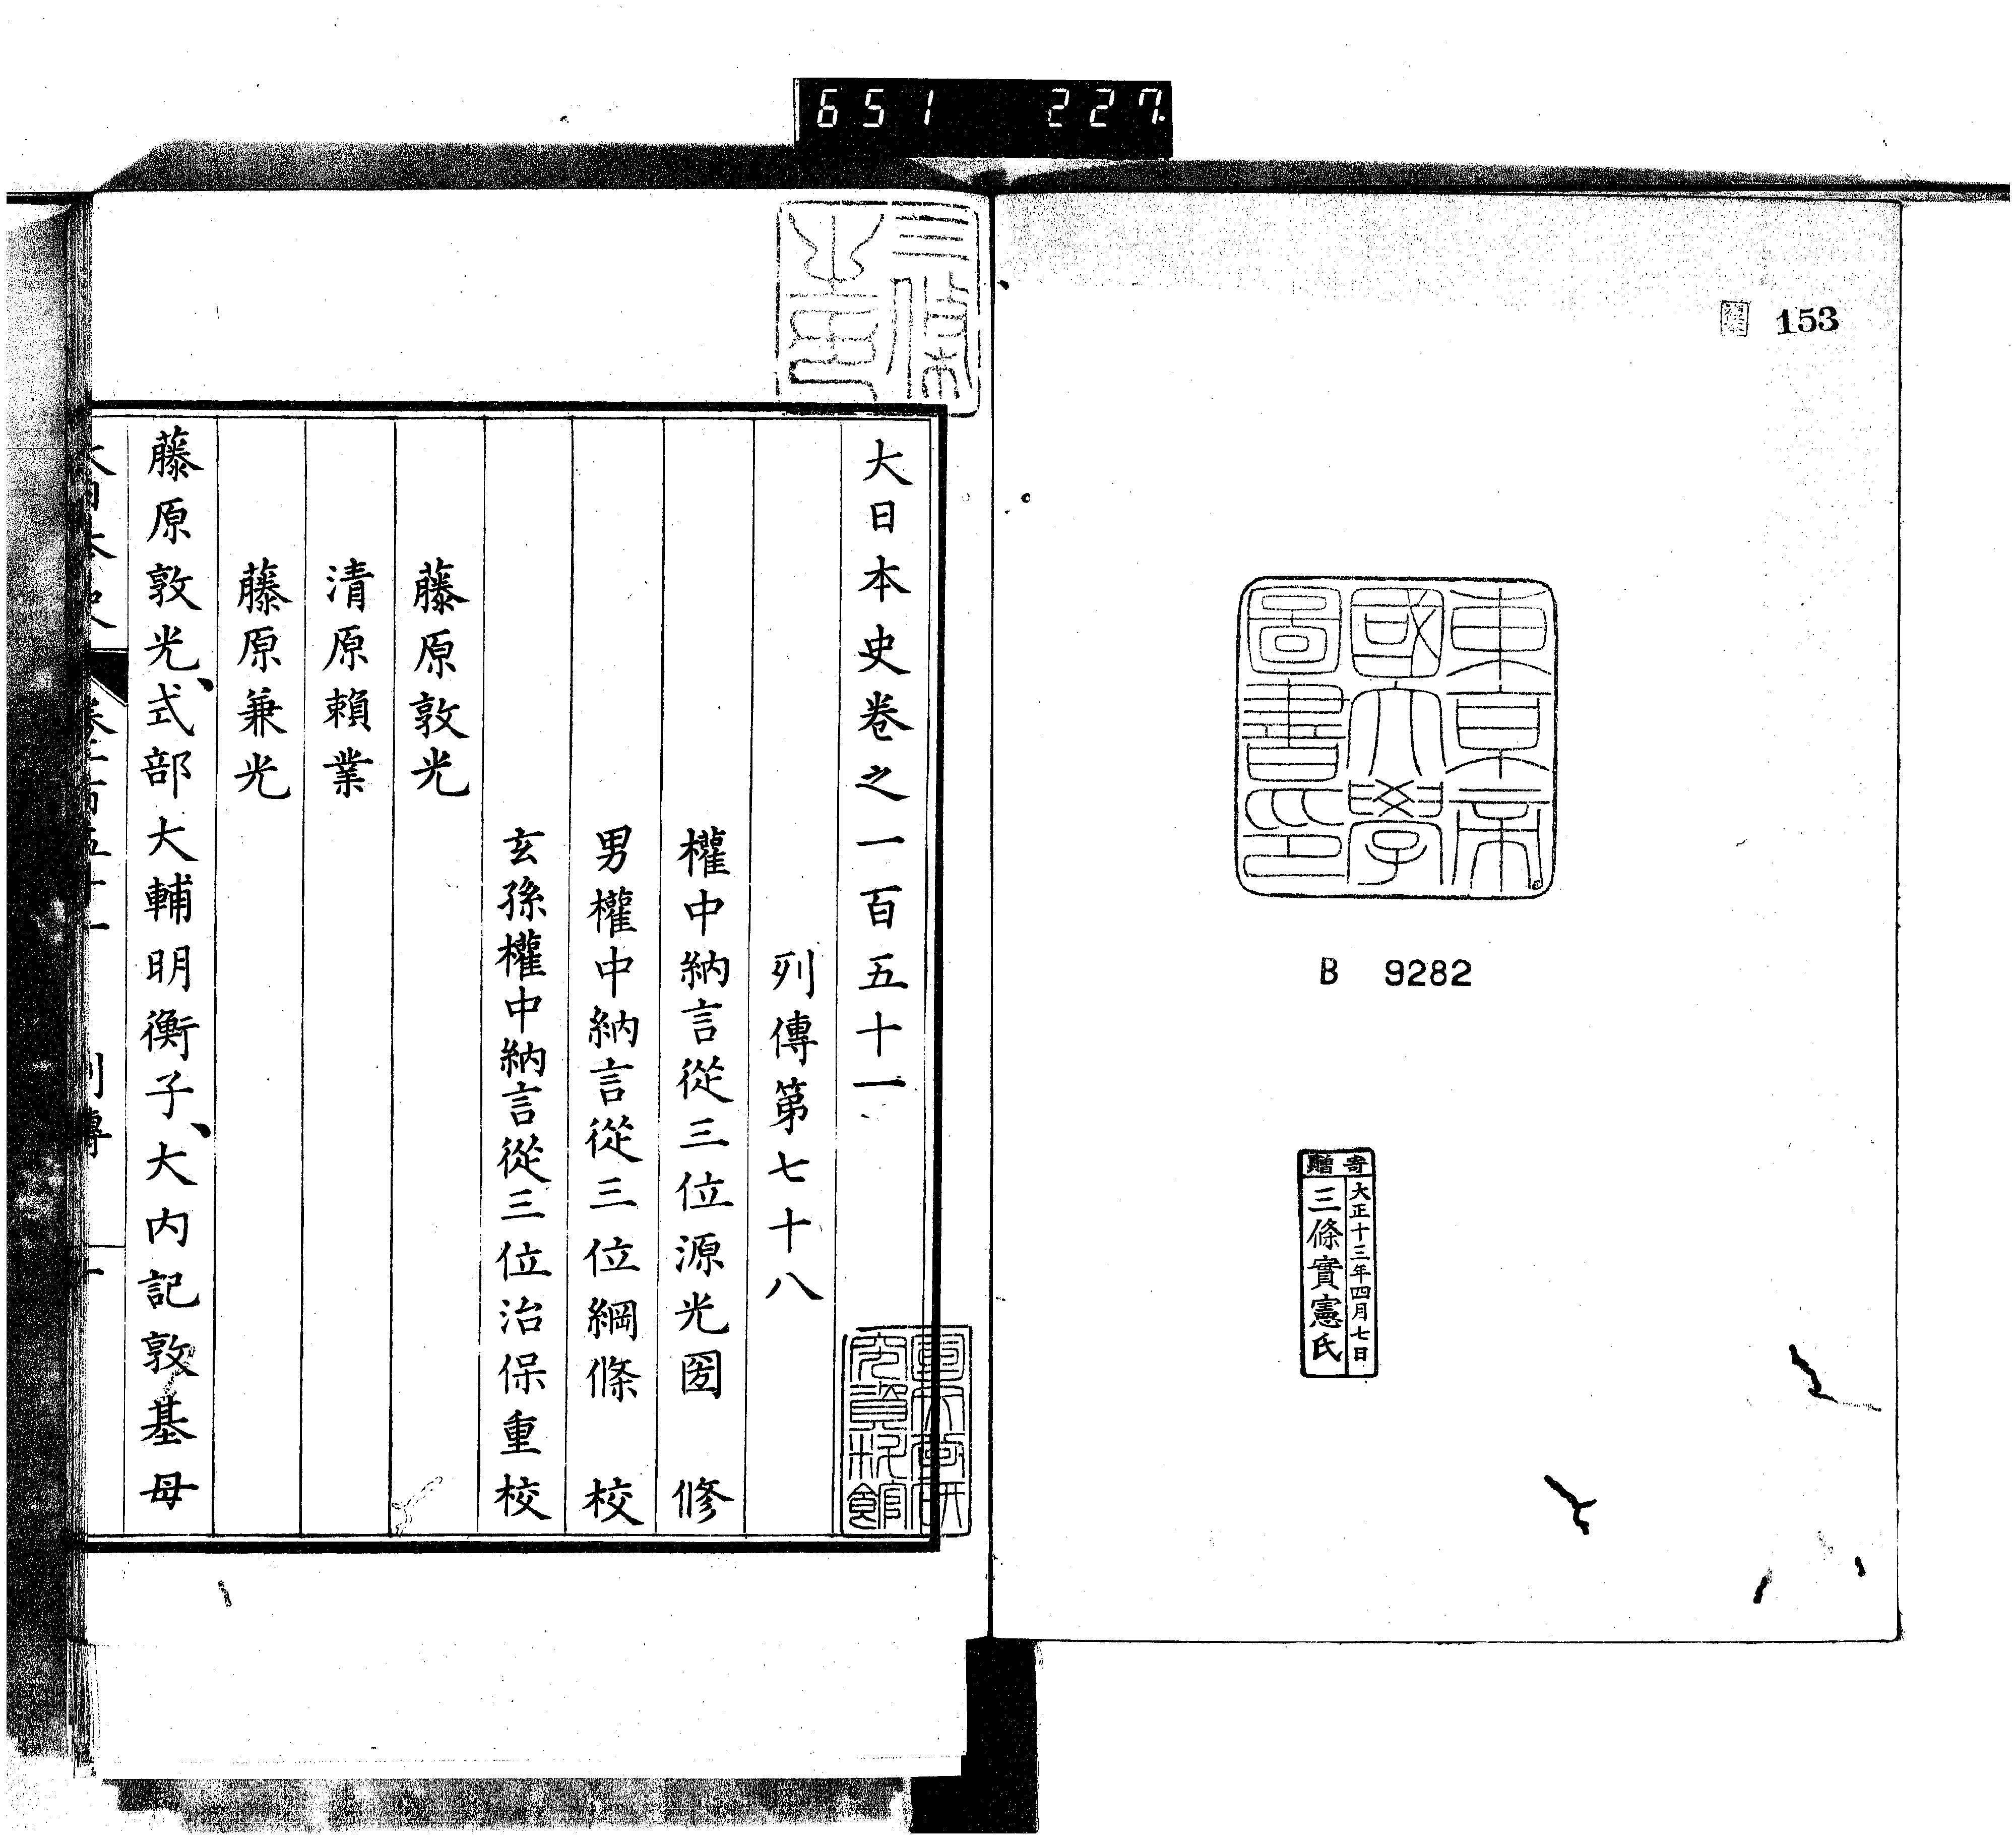 651 227
153
東京帝
國大學
圖書印
B 9282
寄贈
大正十三年四月七日
三條實憲氏
大日本史卷之一百五十一
列傳第七十八
權中納言從三位源光圀 修
男權中納言從三位綱條 校
玄孫權中納言從三位治保重校
藤原敦光
清原賴業
藤原兼光
藤原敦光、式部大輔明衡子、大内記敦基母